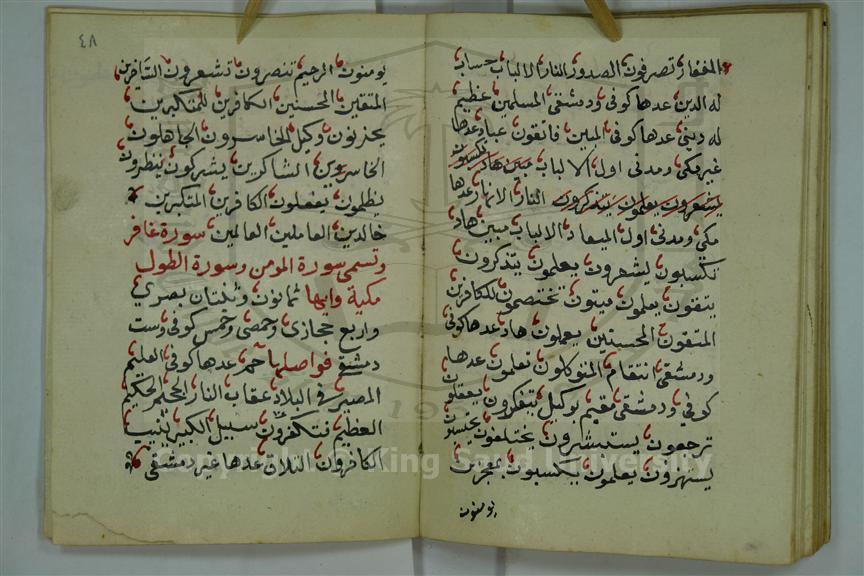 الغفار تصرفون الصدور النار الالباب حساب
له الدين عدها كوفى ودمشقى المسلمين عظيم
له دينى عدها كوفى المبين فاتقون عباد عدها
غير مكى ومدنى اول الالباب مبين هاد تكسبون
يشعرون يعلمون يتذكرون النار الانهار عدها
مكى ومدنى اول الميعاد الالباب مبين هاد
تكسبون يشعرون يعلمون يتذكرون
يتقون يعلمون ميتون تختصمون للكافرين
المتقون المحسنين يعملون هاد عدها كوفى
ودمشقى انتقام المتوكلون تعلمون عدها
كوفى ودمشقى مقيم بوكيل يتفكرون يعقلون
ترجعون يستبشرون يختلفون يحتسبون
يستهزون يعلمون يكسبون بمعجزين
يومنون
٤٨
يومنون الرحيم تنصرون تشعرون الساخرين
المتقين المحسنين الكافرين للمتكبرين
يحزنون وكيل الخاسرون الجاهلون
الخاسرين الشاكرين يشركون ينظرون
يظلمون يفعلون الكافرين المتكبرين
خالدين العاملين العالمين سورة غافر
وتسمى سورة المومن وسورة الطول
مكية وايها ثمانون وثنتان بصري
واربع حجازى وحمصى وخمس كوفى وست
دمشقى فواصلها حم عدها كوفى العليم
المصير فى البلاد عقاب النار الجحيم الحكيم
العظيم فتكفرون سبيل الكبير ينيب
الكافرون التلاق عدها غير دمشقى
Copyright © King Saud University
195